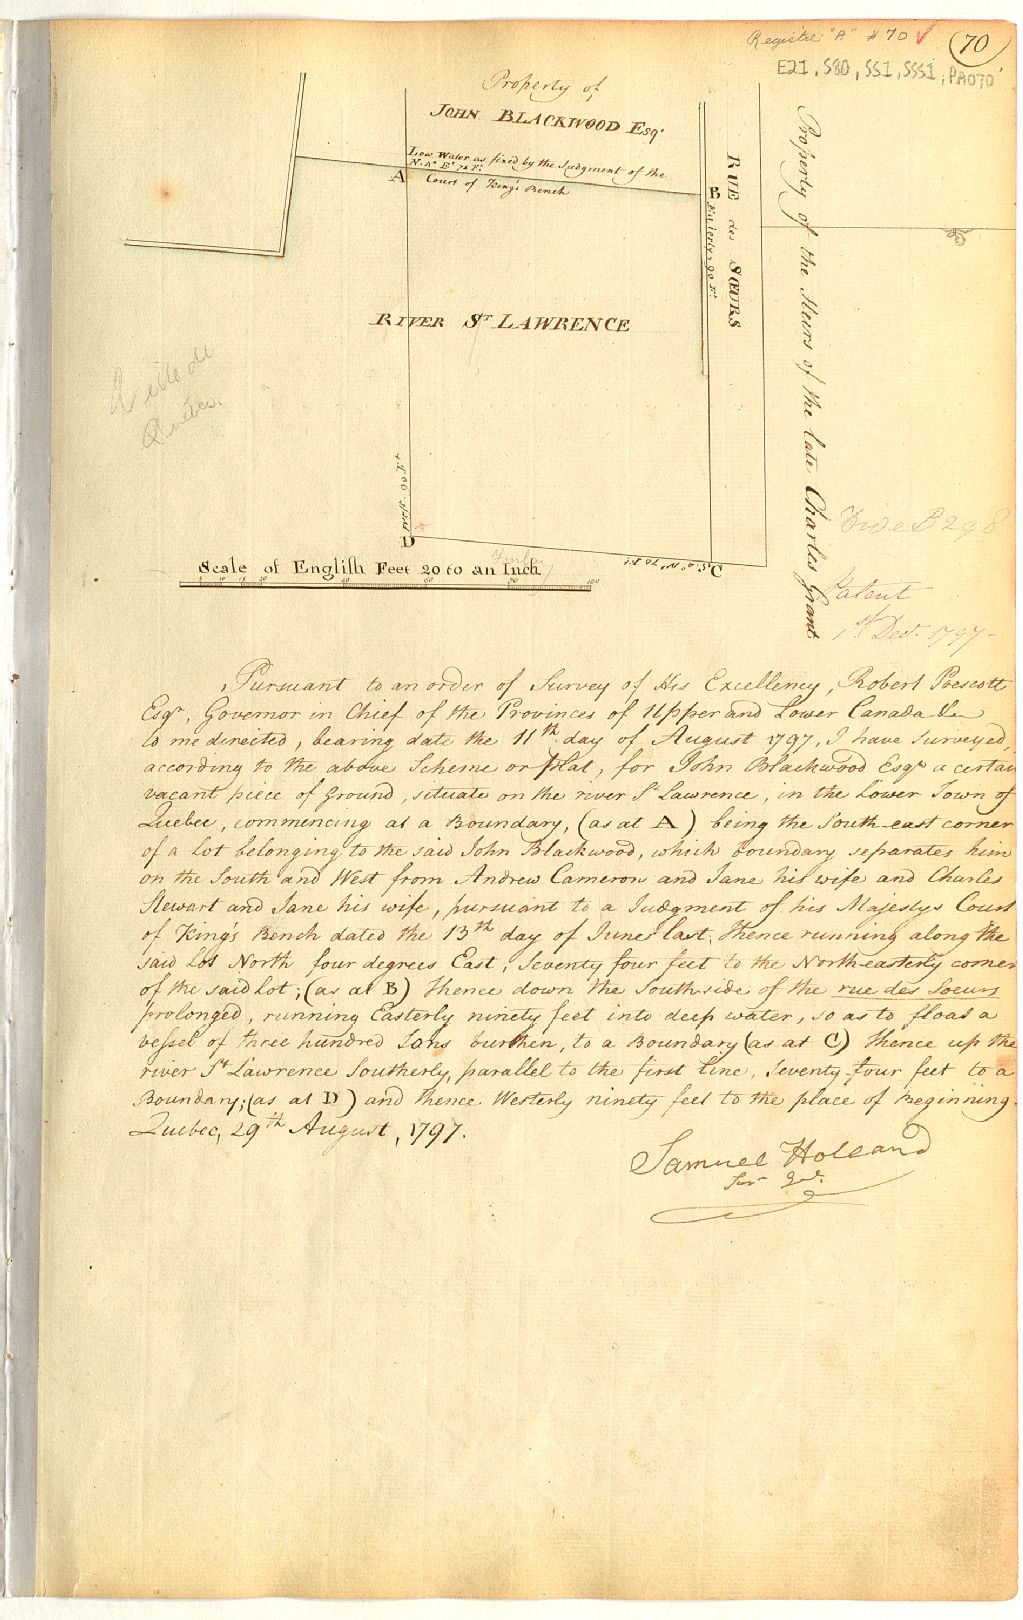 Registre "A" # 70
70
E21, S80, SS1, SSS1, PA070
Property of
JOHN BLACKWOOD Esqr
Low Water as fixed by the Judgment of the
N. 4° E° 74 F.
Court of King's Bench
A
B
Easterly 90 Ft
RUE des SŒURS
Property of the Heirs of the late Charles Grant
RIVER ST LAWRENCE
Ville de
Québec.
West. 90 Ft
D
C
Scale of English Feet 20 to an Inch
5 10 15 20 40 60 80 100
B 298
Patent
1st Decr. 1797-
Pursuant to an order of Survey of His Excellency, Robert Prescott
Esqr, Governor in Chief of the Provinces of Upper and Lower Canada &ca
to me directed, bearing date the 11th day of August 1797, I have surveyed,
according to the above Scheme or plat, for John Blackwood Esqr a certain
vacant piece of Ground, situate on the river St Lawrence, in the Lower Town of
Quebec, commencing at a Boundary, (as at A) being the South-east corner
of a Lot belonging to the said John Blackwood, which boundary separates him
on the South and West from Andrew Cameron and Jane his wife and Charles
Stewart and Jane his wife, pursuant to a Judgment of his Majestys Court
of King's Bench dated the 13th day of June last; thence running along the
said Lot North four degrees East, Seventy four feet to the North-easterly corner
of the said Lot; (as at B) thence down the South side of the rue des Soeurs
prolonged, running Easterly ninety feet into deep water, so as to float a
vessel of three hundred Tons burthen, to a Boundary (as at C) thence up the
river St Lawrence Southerly, parallel to the first line, Seventy-four feet to a
Boundary; (as at D) and thence Westerly ninety feet to the place of Beginning.
Quebec, 29th August, 1797.
Samuel Holland
Sur Gel.